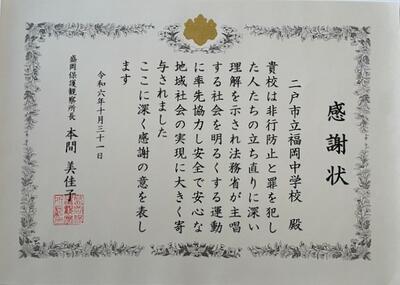 感謝状
二戸市立福岡中学校 殿
貴校は非行防止と罪を犯し
た人たちの立ち直りに深い
理解を示され法務省が主唱
する社会を明るくする運動
に率先協力し安全で安心な
地域社会の実現に大きく寄
与されました
ここに深く感謝の意を表し
ます
令和六年十月三十一日
盛岡保護観察所長 本間 美佳子